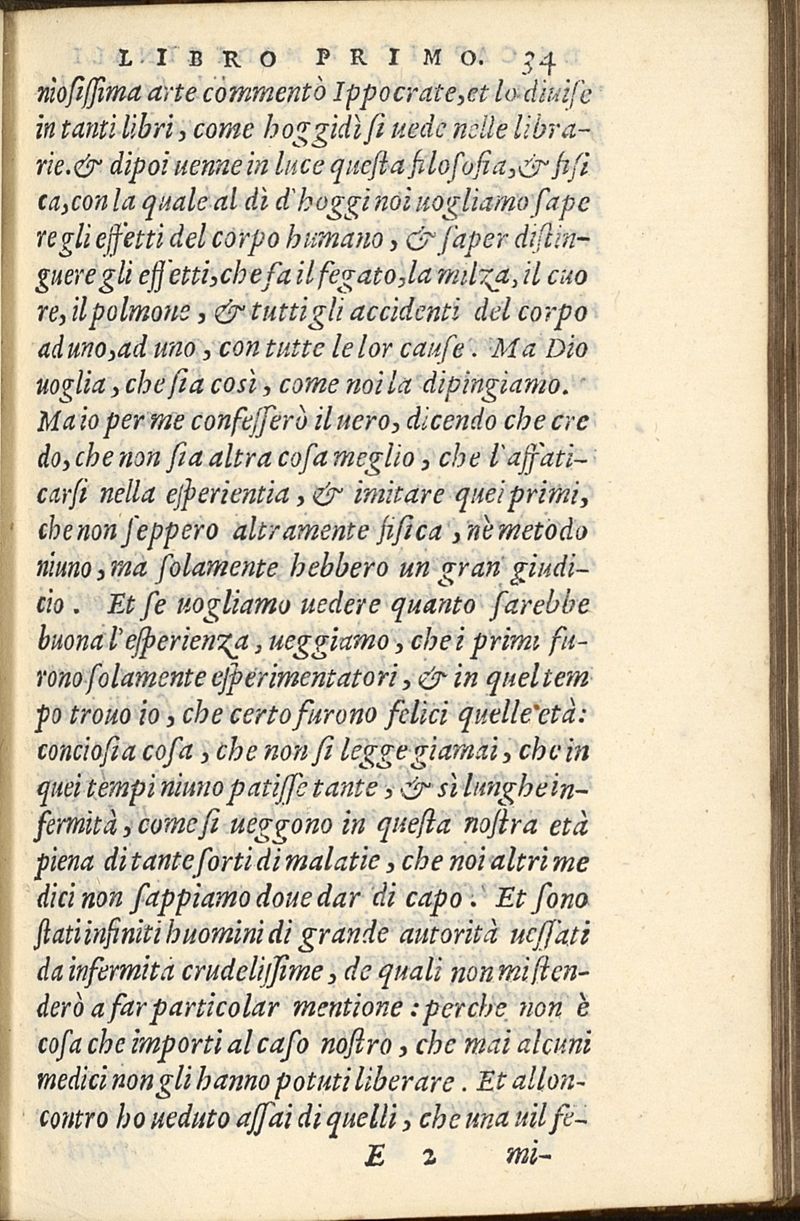 LIBRO PRIMO. 34
niosiſſima arte commentò Ippocrate, et lo diuiſe
in tanti libri, come hoggidì ſi uede nelle libra-
rie. & dipoi uenne in luce queſta filoſofia, & fiſi
ca, con la quale al dì d'hoggi noi uogliamo ſape
re gli effetti del corpo humano, & ſaper diſtin-
guere gli effetti, che fa il fegato, la milza, il cuo
re, il polmone, & tutti gli accidenti del corpo
ad uno, ad uno, con tutte le lor cauſe. Ma Dio
uoglia, che ſia così, come noi la dipingiamo.
Ma io per me confeſſerò il uero, dicendo che cre
do, che non ſia altra coſa meglio, che l'affati-
carſi nella eſperientia, & imitare quei primi,
che non ſeppero altramente fiſica, nè metodo
niuno, ma ſolamente hebbero un gran giudi-
cio. Et ſe uogliamo uedere quanto ſarebbe
buona l'eſperienza, ueggiamo, che i primi fu-
rono ſolamente eſperimentatori, & in quel tem
po trouo io, che certo furono felici quelle età:
concioſia coſa, che non ſi legge giamai, che in
quei tempi niuno patiſſe tante, & sì lunghe in-
fermità, come ſi ueggono in queſta noſtra età
piena di tante ſorti di malatie, che noi altri me
dici non ſappiamo doue dar di capo. Et ſono
ſtati infiniti huomini di grande autorità ueſſati
da infermità crudeliſſime, de quali non mi ſten-
derò a far particolar mentione: perche non è
coſa che importi al caſo noſtro, che mai alcuni
medici non gli hanno potuti liberare. Et allon-
contro ho ueduto aſſai di quelli, che una uil fe-
E 2 mi-